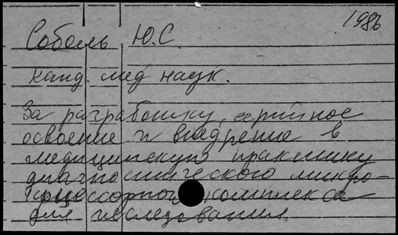 1986
Соболь Ю.С.
канд. мед наук.
За разработку, серийное
освоение и внедрение в
медицинскую практику
диагностического микро-
процессорного комплекса
для исследования